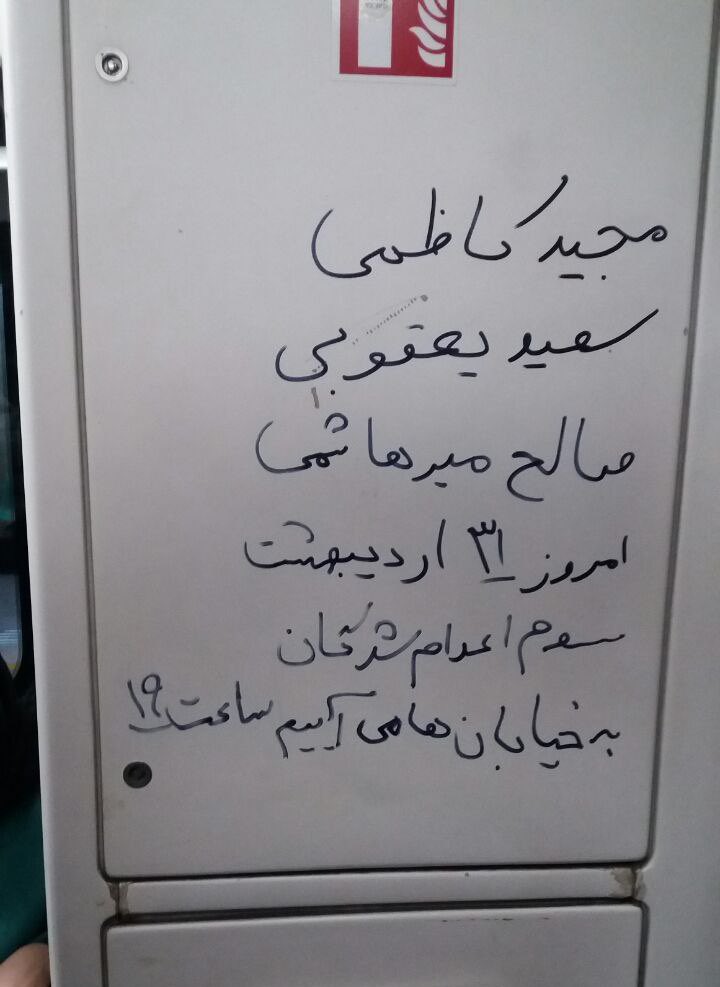 مجید کاظمی
سعید یعقوبی
صالح میرهاشمی
امروز ۳۱ اردیبهشت
سوم اعدام شدگان
به خیابان ها می آییم ساعت ۱۹